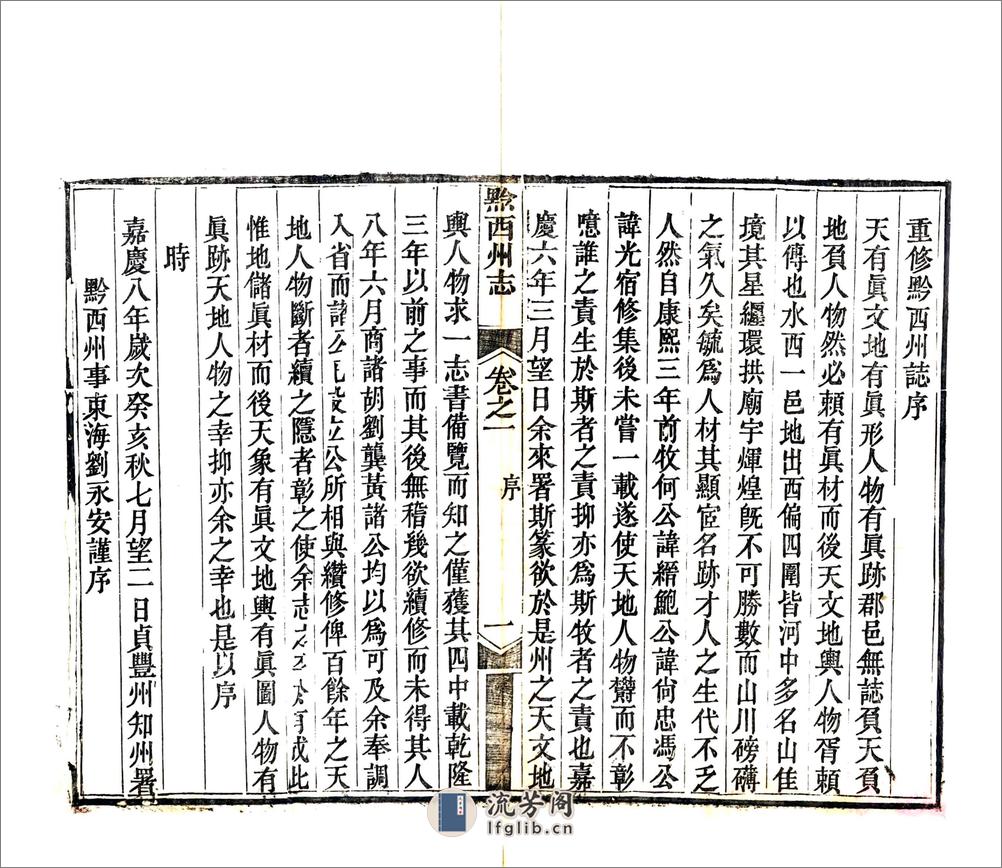 重修黔西州誌序
天有眞文地有眞形人物有眞跡郡邑無誌頁天頁
地頁人物然必賴有眞材而後天文地輿人物胥賴
以傳也水西一邑地出西偏四圍皆河中多名山佳
境其星纒環拱廟宇煇煌旣不可勝數而山川磅礴
之氣久矣毓爲人材其顯宦名跡才人之生代不乏
人然自康熙三年前牧何公諱縉鮑公諱尙忠馮公
諱光宿修集後未嘗一載遂使天地人物欝而不彰
噫誰之責生於斯者之責抑亦爲斯牧者之責也嘉
慶六年三月望日余來署斯篆欲於是州之天文地
黔西州志
卷之一
序
一
輿人物求一志書備覽而知之僅獲其四中載乾隆
三年以前之事而其後無稽幾欲續修而未得其人
八年六月商諸胡劉龔黃諸公均以爲可及余奉調
入省而諸公公所相與纘修俾百餘年之天
地人物斷者續之隱者彰之使余志之有成此
惟地儲眞材而後天象有眞文地輿有眞圖人物有
眞跡天地人物之幸抑亦余之幸也是以序
時
嘉慶八年歲次癸亥秋七月望二日貞豐州知州署
黔西州事東海劉永安謹序
流芳阁
lfglib.cn